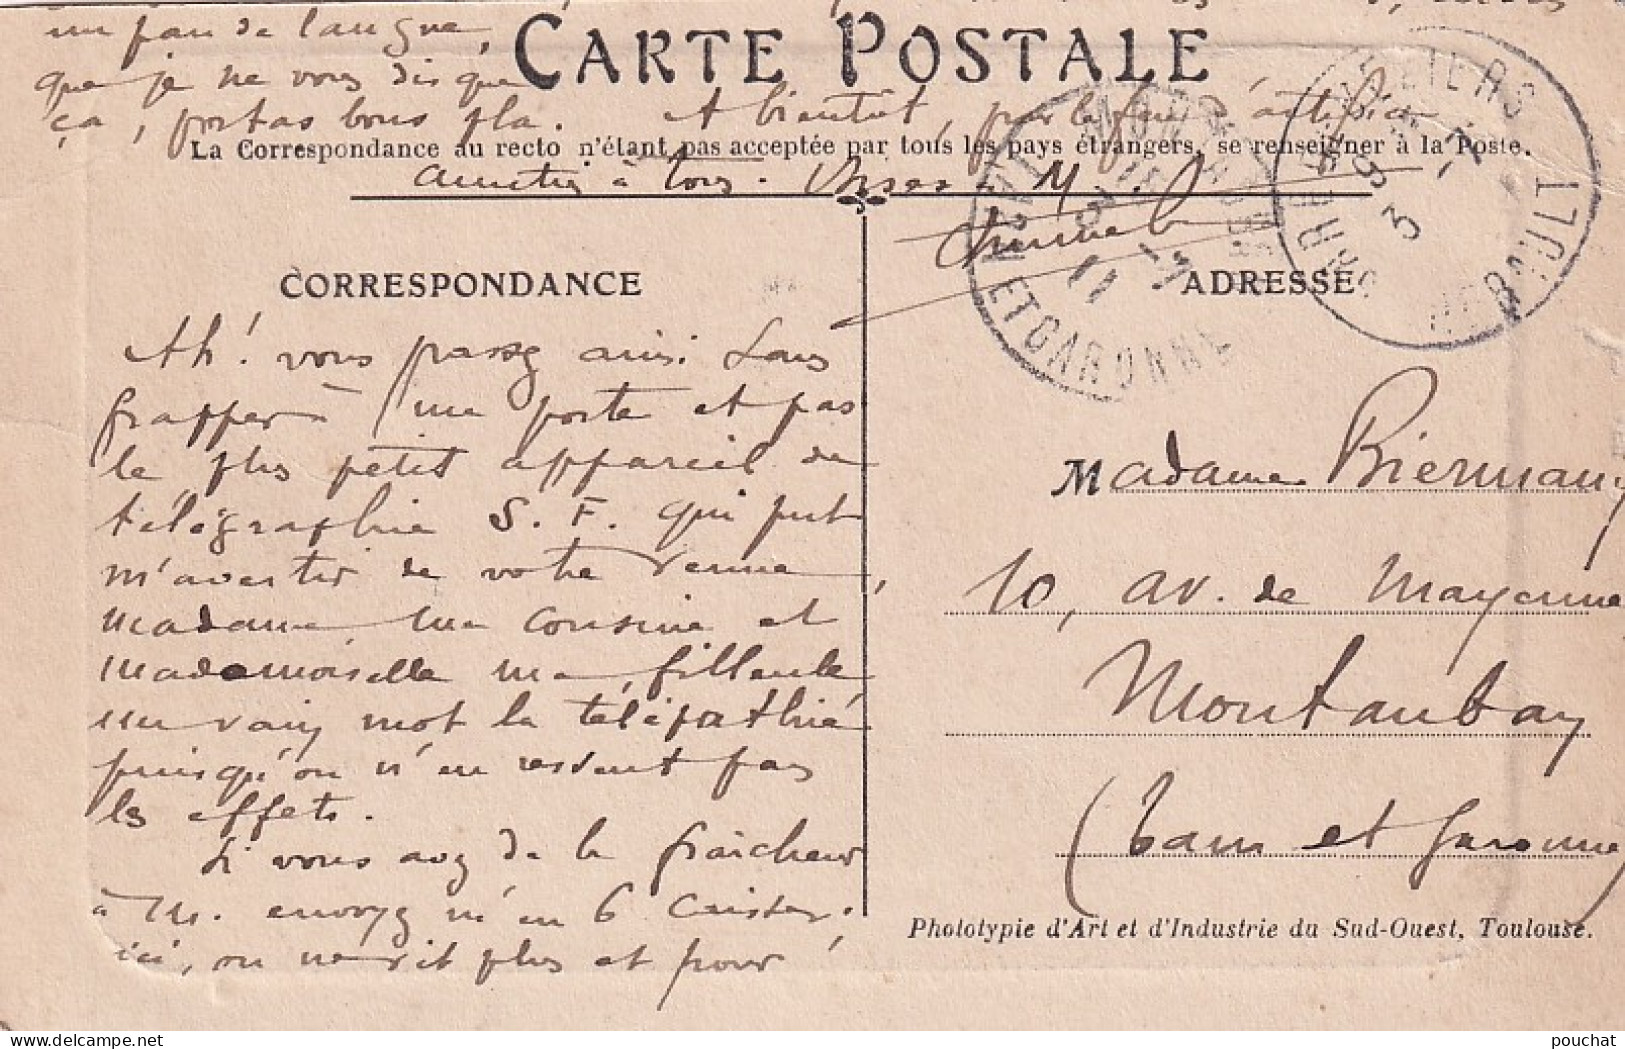 un peu de langue,
que je ne vous dis que
ça, portas bous pla. A bientôt, pour le feu d'artifice
CARTE POSTALE
La Correspondance au recto n'étant pas acceptée par tous les pays étrangers, se renseigner à la Poste.
à tous.
CORRESPONDANCE
Ah! vous passez ainsi sans
frapper à ma porte et pas
le plus petit appareil de
télégraphie S. F. qui put
m'avertir de votre venue,
madame ma cousine et
mademoiselle ma filleule,
un vain mot la télépathie
puisqu'on n'en ressent pas
les effets.
Si vous avez de la fraîcheur
à M. envoyez m'en 6 caisses;
ici, on ne rit plus et pour
ADRESSE
TARN ET GARONNE
3 -7
11
BEZIERS
HERAULT
Madame Biermany
10, av. de Mayenne
Montauban
(Tarn et Garonne)
Phototypie d'Art et d'Industrie du Sud-Ouest, Toulouse.
pouchat